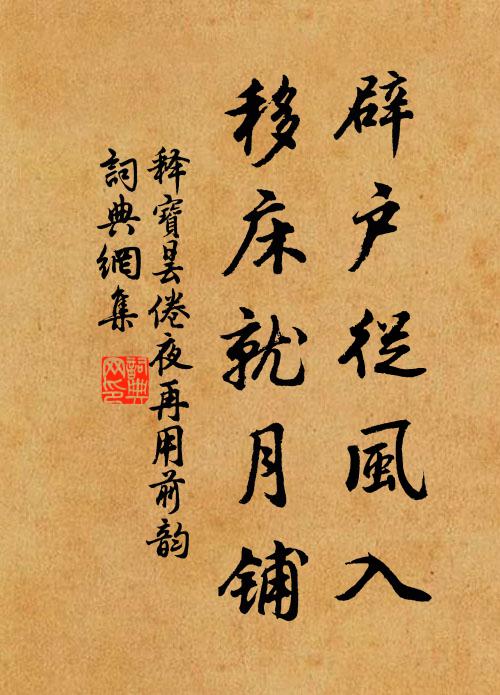 辟户從風入
移床就月铺
释寶昙倦夜再用前韵
詞典網集
詞典
网印